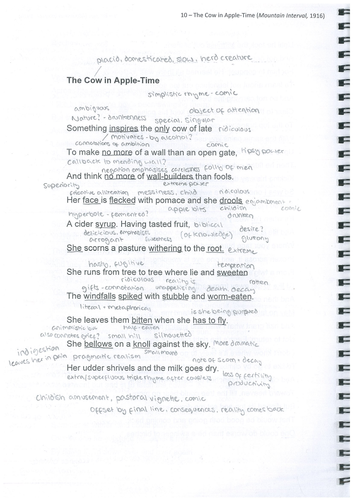 10 – The Cow in Apple-Time (Mountain Interval, 1916)
placid, domesticated, sow, herd creature
The Cow in Apple-Time
simplistic rhyme - comic
ambiguous object of attention
Nature? - drunkenness special, singular
Something inspires the only cow of late ridiculous
motivates - by alcohol?
connotations of ambition comic
To make no more of a wall than an open gate,
callback to mending wall?
negation emphasises folly of men
And think no more of wall-builders than fools.
superiority extreme
alliteration messiness, child ridiculous
Her face is flecked with pomace and she drools enjambment -
apple bits childish comic
hyperbole - fermented? drunken
A cider syrup. Having tasted fruit, biblical desire?
delicious, (of knowledge) gluttony
arrogant
She scorns a pasture withering to the root. extreme
hasty, fugitive temptation
She runs from tree to tree where lie and sweeten
ridiculous rotten
gifts - connotation unappealing death, decay
The windfalls spiked with stubble and worm-eaten.
literal + metaphorical is she being pursued
She leaves them bitten when she has to fly.
half-eaten
small hill silhouetted
She bellows on a knoll against the sky. More dramatic
indigestion small mound
leaves her in pain pragmatic realism note of scorn + decay
Her udder shrivels and the milk goes dry.
extra/superfluous triple rhyme after couplets loss of fertility
productivity
childish amusement, pastoral vignette, comic
offset by final line. consequences, reality comes back